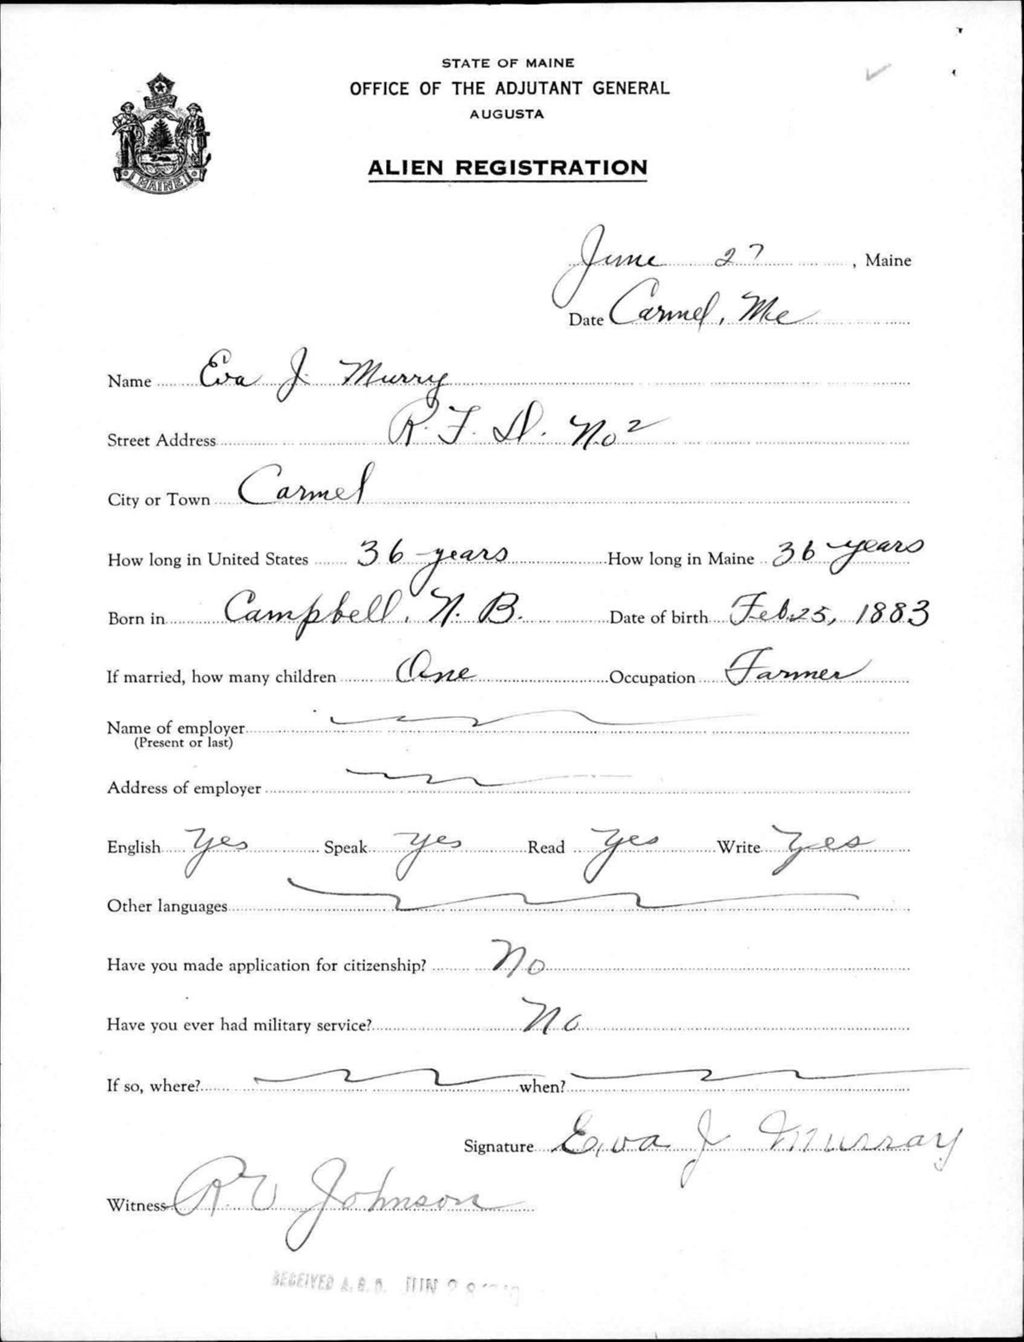 STATE OF MAINE
OFFICE OF THE ADJUTANT GENERAL
AUGUSTA
ALIEN REGISTRATION
MAINE
June 27, Maine
Date Carmel, Me
Name Eva J. Murry
Street Address R. F. D. No 2
City or Town Carmel
How long in United States 36 years How long in Maine 36 years
Born in Campbell, N. B. Date of birth Feb. 25, 1883
If married, how many children One Occupation Farmer
Name of employer
(Present or last)
Address of employer
English Yes Speak Yes Read Yes Write Yes
Other languages
Have you made application for citizenship? No
Have you ever had military service? No
If so, where? when?
Signature Eva J Murray
Witness R. V Johnson
RECEIVED A. G. O. JUN 28